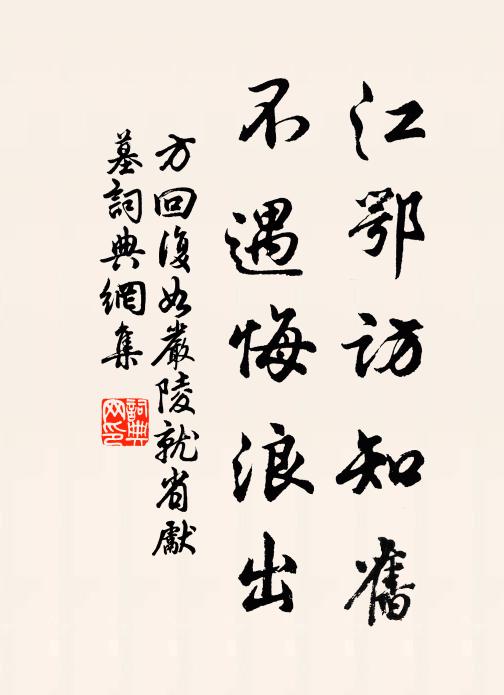 江鄂访知舊
不遇悔浪出
方回復如嚴陵就省獻
墓詞典網集
詞典
网印